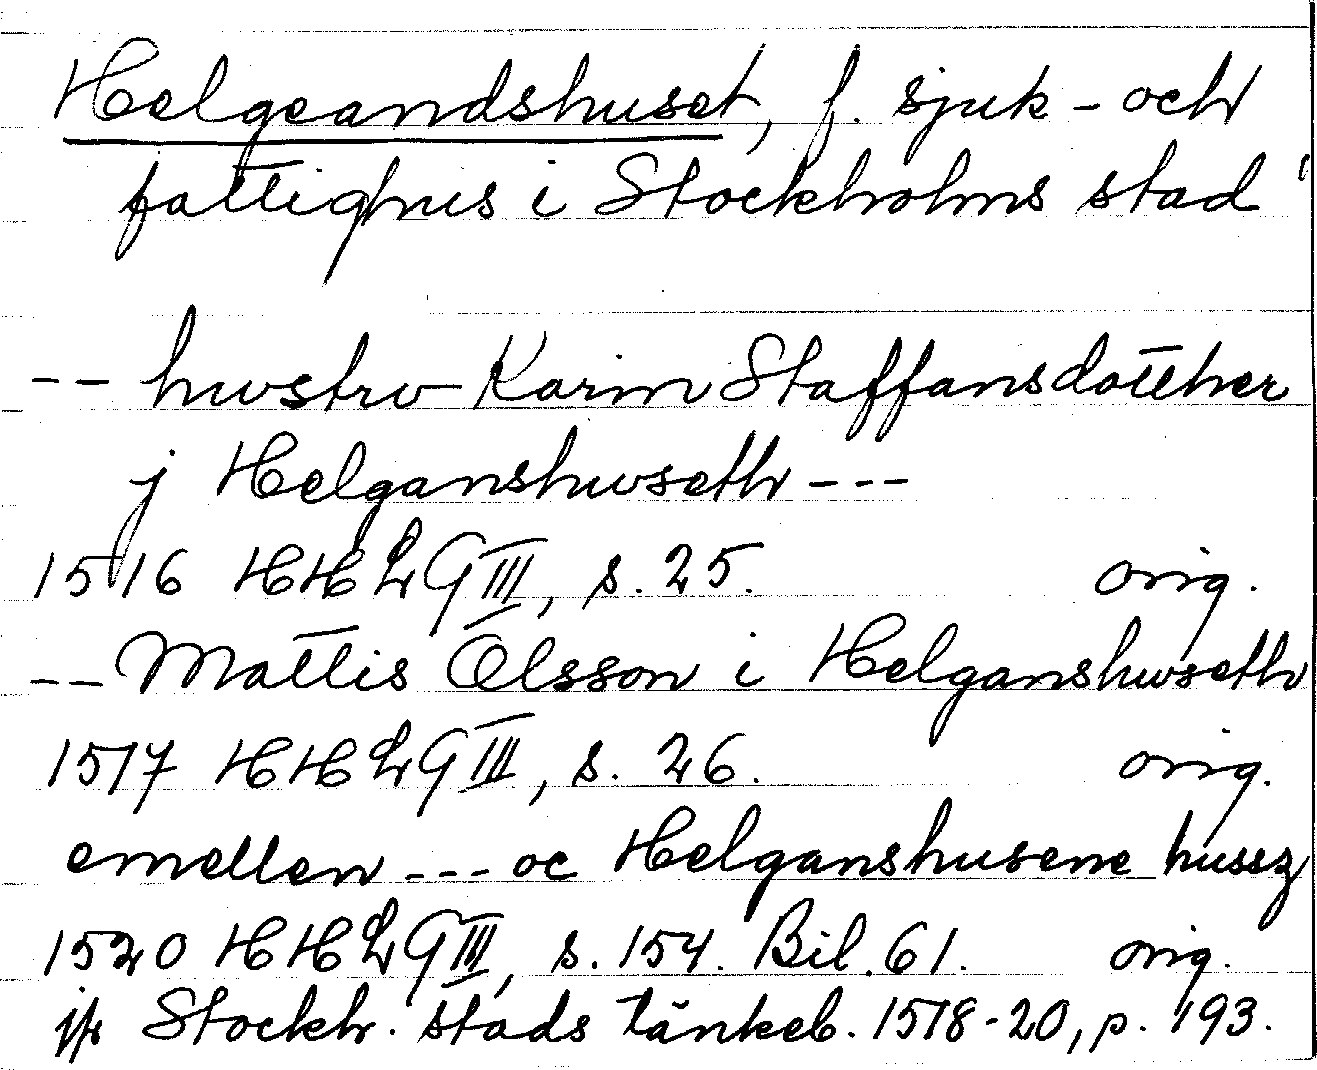 Helgeandshuset, f. sjuk- och
fattighus i Stockholms stad
-- hwstrv Karin Staffansdotther
j Helganshwseth ---
1516 HHLG III, s. 25. orig.
-- Mattis Olsson i Helganshwseth
1517 HHLG III, s. 26. orig.
emellen --- oc Helganshusene hussz
1520 HHLG III, s. 154. Bil. 61. orig.
jfr Stockh. stads tänkeb. 1518-20, p. 193.